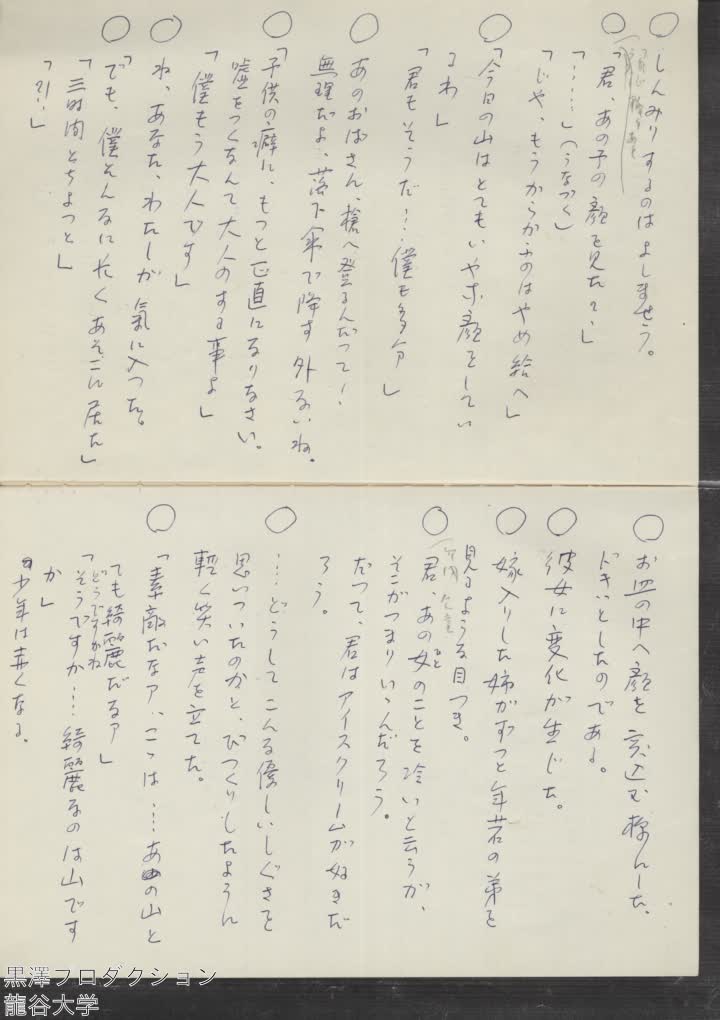 ○ しんみりするのはよしませう。
○「君、あの子の顔を見た？」
「……」(うなづく)
「じや、もうからかふのはやめ給へ」
○「今日の山はとてもいやな顔をしてい
るわ」
「君もそうだ……僕も多分」
○ あのおばさん、槍へ登るんだって！
無理だよ、落下傘で降す外ないね。
○「子供の癖に、もっと正直になりなさい。
嘘をつくなんて大人のする事よ」
「僕もう大人です」
○ ね、あなた、わたしが氣に入った。
○「でも、僕そんなに長くあそこに居た」
「三时间とちょっと」
「 」
○ お皿の中へ顔を 込む様にした、
ドキッとしたのである。
○ 彼女に変化が生じた。
○ 嫁入りした姉がずっと年若の弟を
見るような目つき。
○ 君、あの女のことを冷いと云うが、
ひと
そこがつまりいゝんだろう。
だって、君はアイスクリームが好きだ
ろう。
○ …どうしてこんな優しいしぐさを
思いついたのかと、びっくりしたように
軽く笑い声を立てた。
○「素敵だなァ、こゝは……あの山と
ても綺麗だなァ」
どうですかね
「そうですか…綺麗なのは山です
か」
少年は赤くなる。
黒澤プロダクション
龍谷大学